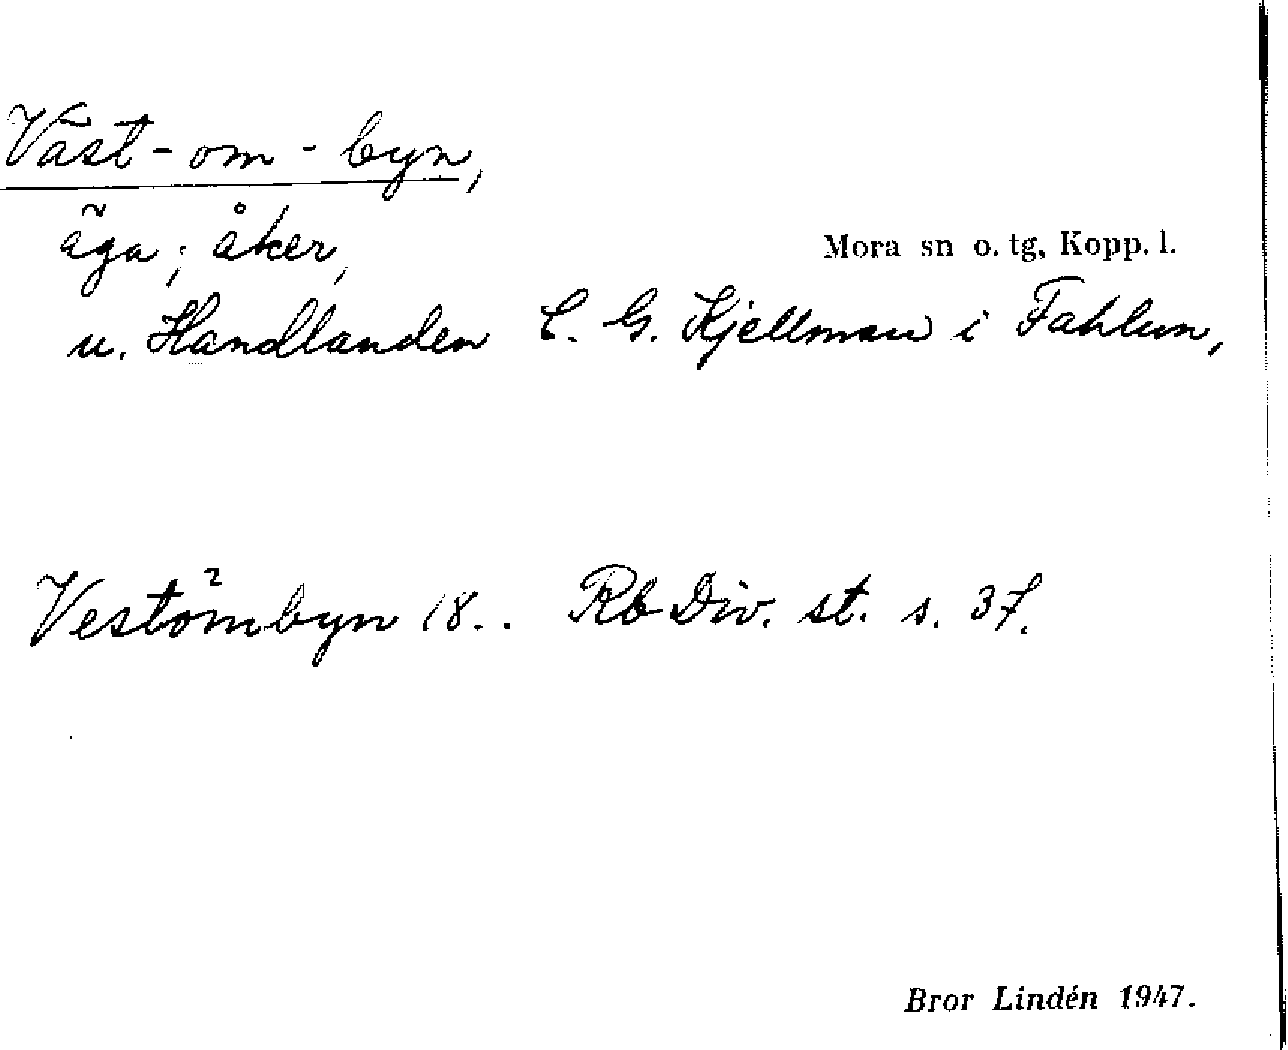 Väst-om-byn,
äga; åker,
Mora sn o. tg, Kopp. l.
u. Handlanden C. G. Kjellman i Fahlun,
Vestombyn 18.. Rb Div. st. s. 37.
Bror Lindén 1947.